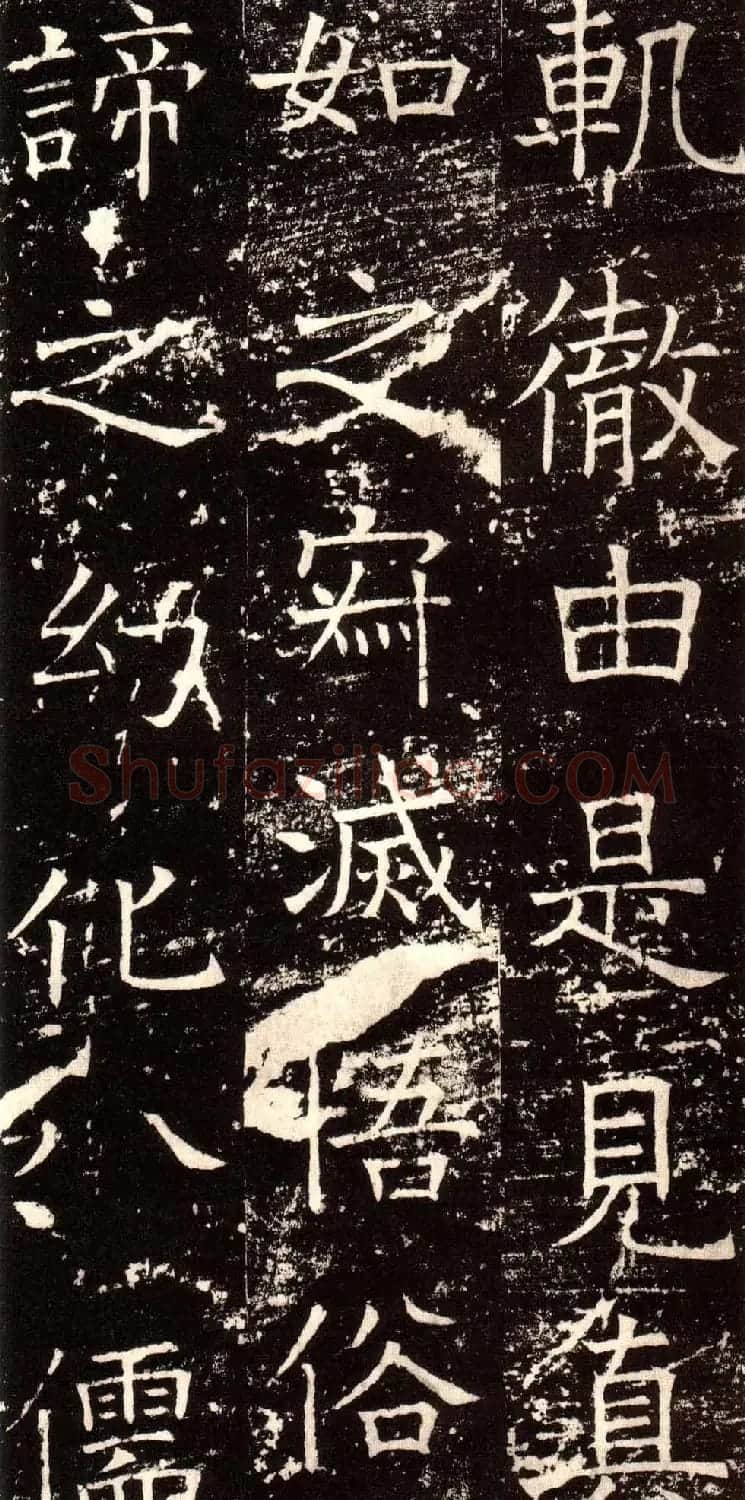 軌徹由是見真
如之寂滅悟俗
諦之化八儒
Shufaziliao.COM